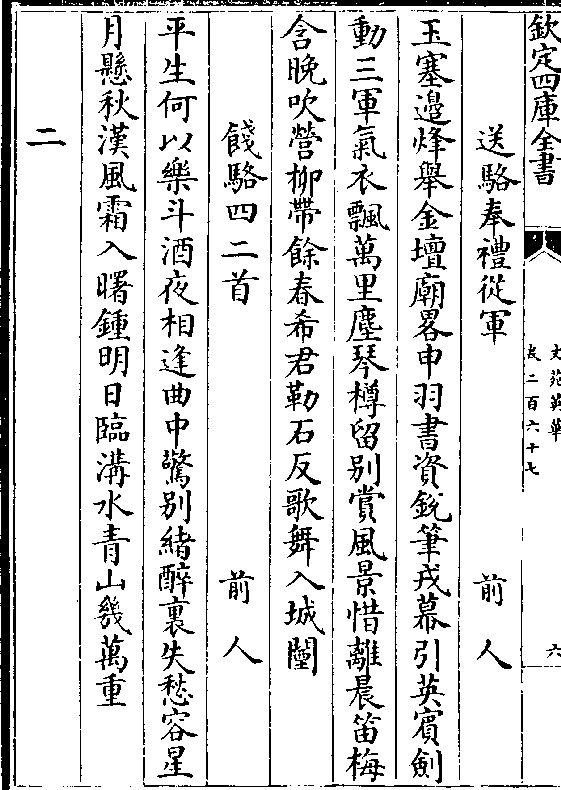 欽定四庫全書
文苑英華
卷二百六十七
六
送駱奉禮從軍 前人
玉塞邉烽舉金壇廟畧申羽書資銳筆戎幕引英賓劍
動三軍氣衣飄萬里塵琴樽留別賞風景惜離晨笛梅
含晚吹營柳帶餘春希君勒石反歌舞入城闉
餞駱四二首 前人
平生何以樂斗酒夜相逢曲中驚別緒醉裏失愁容星
月懸秋漢風霜入曙鍾明日臨溝水青山幾萬重
二